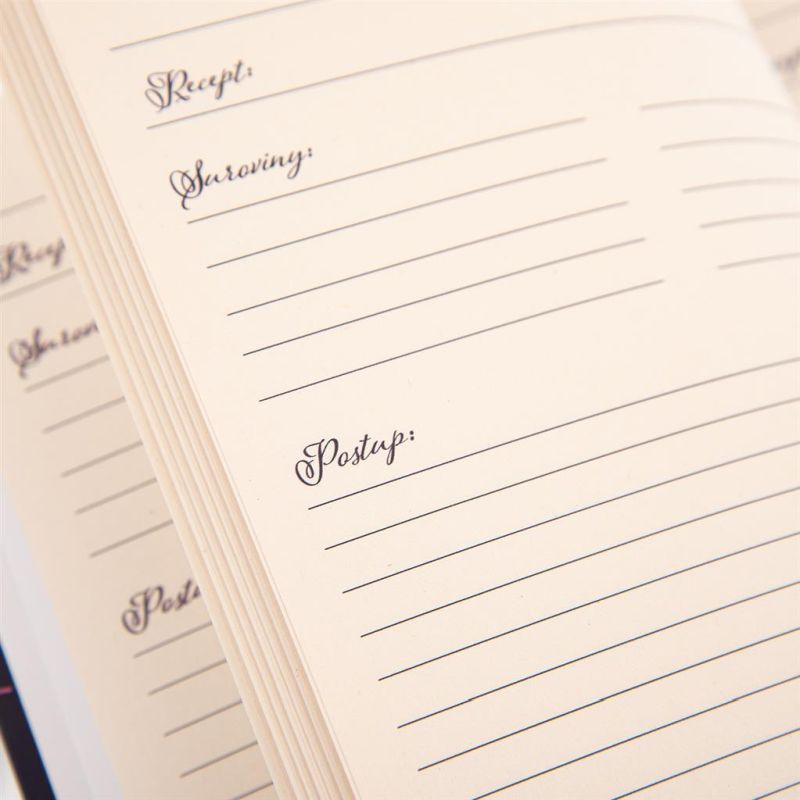 Recept:
Suroviny:
Postup:
Recep
Surovin
Postu